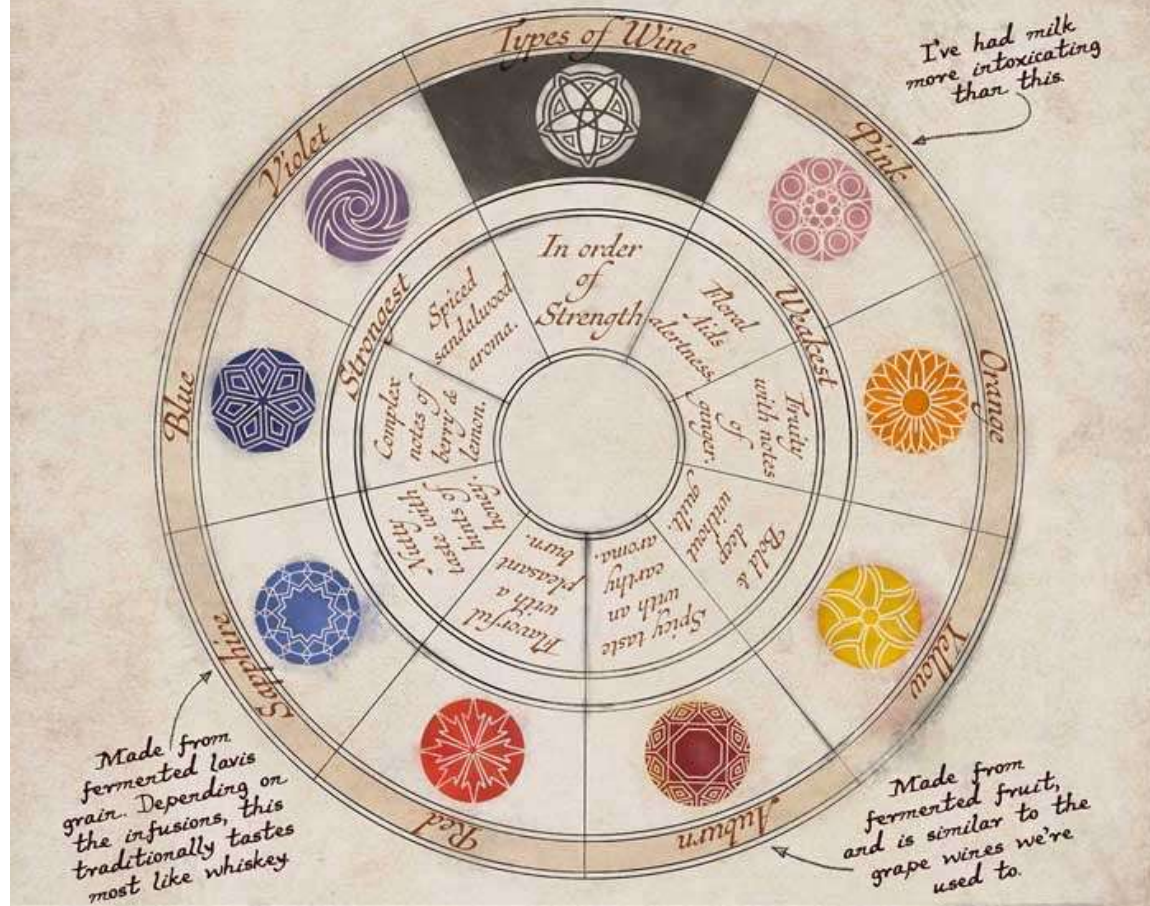 Types of Wine
I've had milk
more intoxicating
than this.
Pink
Orange
Yellow
Auburn
Red
Sapphire
Blue
Violet
In order
of
Strength
Weakest
Strongest
Floral
Aids
alertness.
Fruity
with notes
of
ginger.
Bold &
deep
without
guilt.
Spicy taste
with an
earthy
aroma.
Flavorful
with a
pleasant
burn.
Nutty
taste with
hints of
honey.
Complex
notes of
berry &
lemon.
Spiced
sandalwood
aroma.
Made from
fermented lavis
grain. Depending on
the infusions, this
traditionally tastes
most like whiskey.
Made from
fermented fruit,
and is similar to the
grape wines we're
used to.